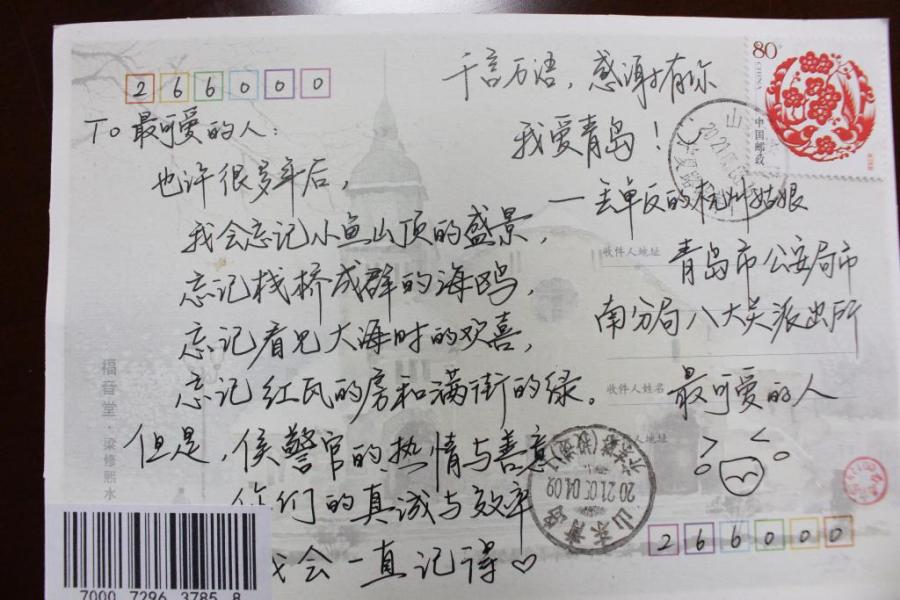 266000
千言万语，感谢有你
80分
CHINA
中国邮政
我爱青岛！
To 最可爱的人：
也许很多年后，
我会忘记小鱼山顶的盛景，
忘记栈桥成群的海鸥，
忘记看见大海时的欢喜，
忘记红瓦的房和满街的绿。
但是，侯警官的热情与善意
你们的真诚与效率
我会一直记得♡
—丢单反的杭州姑娘
收件人地址
青岛市公安局市
南分局八大关派出所
收件人姓名
最可爱的人
福音堂·梁修熙水
山东青岛
2021.05.04.09
266000
7000 7296 3785 8